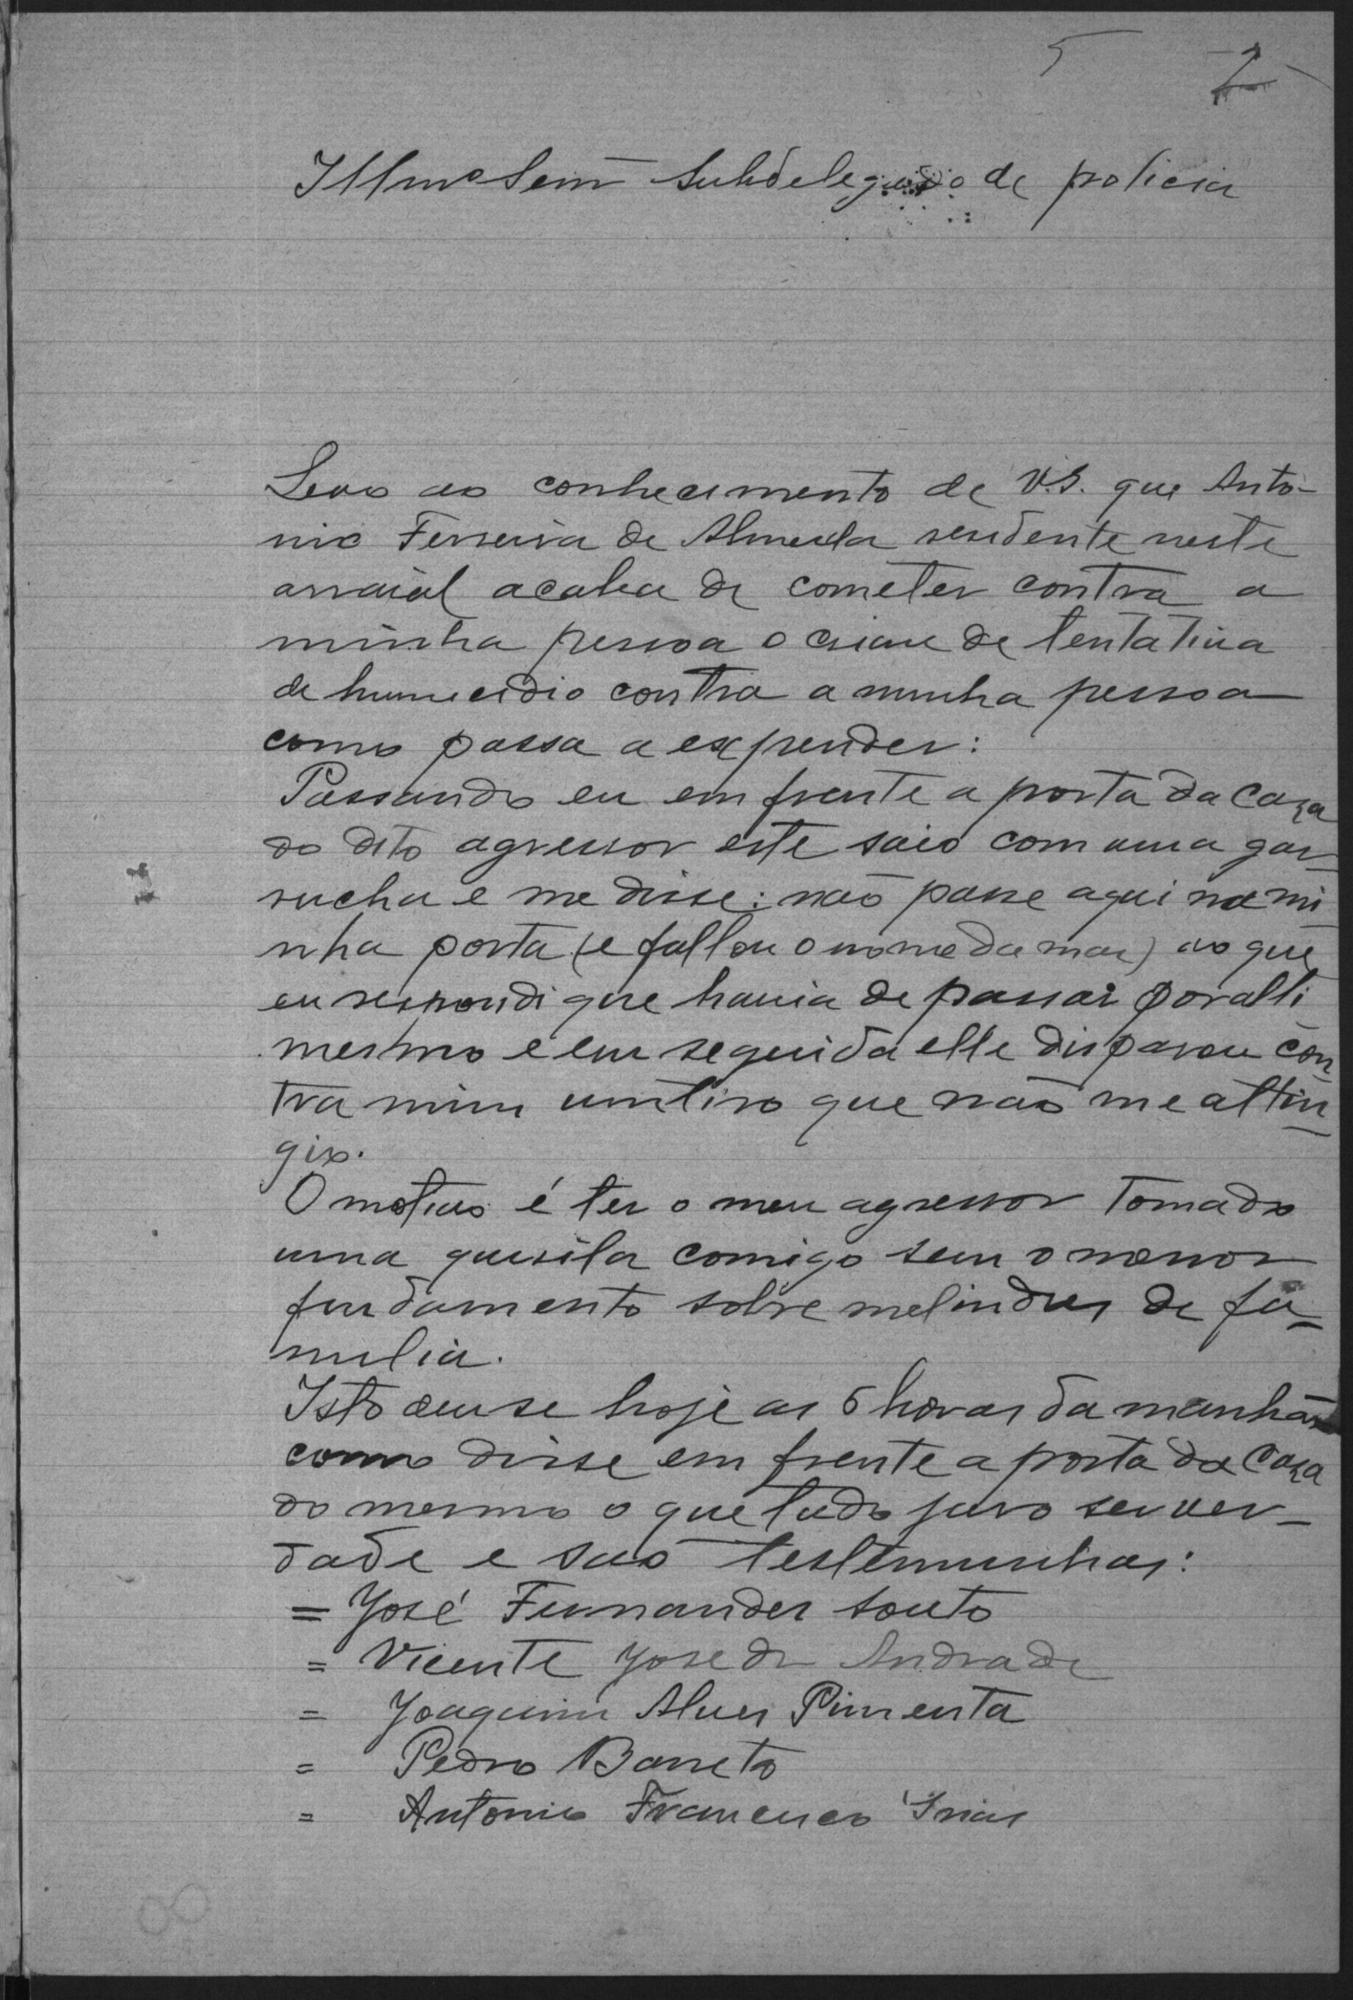 5 2
Illmo Senr Subdelegado de policia
Levo ao conhecimento de V.S. que Anto-
nio Ferreira de Almeida residente neste
arraial acaba de cometer contra a
minha pessoa o crime de tentativa
de humecidio contra a minha pessoa
como passa a expender:
Passando eu em frente a porta da Caza
do dito agressor este saio com uma gar
rucha e me disse: não passe aqui na mi
nha porta (e fallou o nome da mai) ao que
eu respondi que havia de passar por alli
mesmo e em seguida elle disparou con
tra mim um tiro que não me attin
gio.
O motivo é ter o meu agressor tomado
uma quisila comigo sem o menor
fundamento sobre melindres de fa-
milia.
Isto deu se hoje as 6 horas da manhã
como disse em frente a porta da Caza
do mesmo o que tudo juro ser ver-
dade e são testemunhas:
= José Fernandes Souto
= Vicente José de Andrade
= Joaquim Alves Pimenta
= Pedro Barreto
= Antonio Francisco